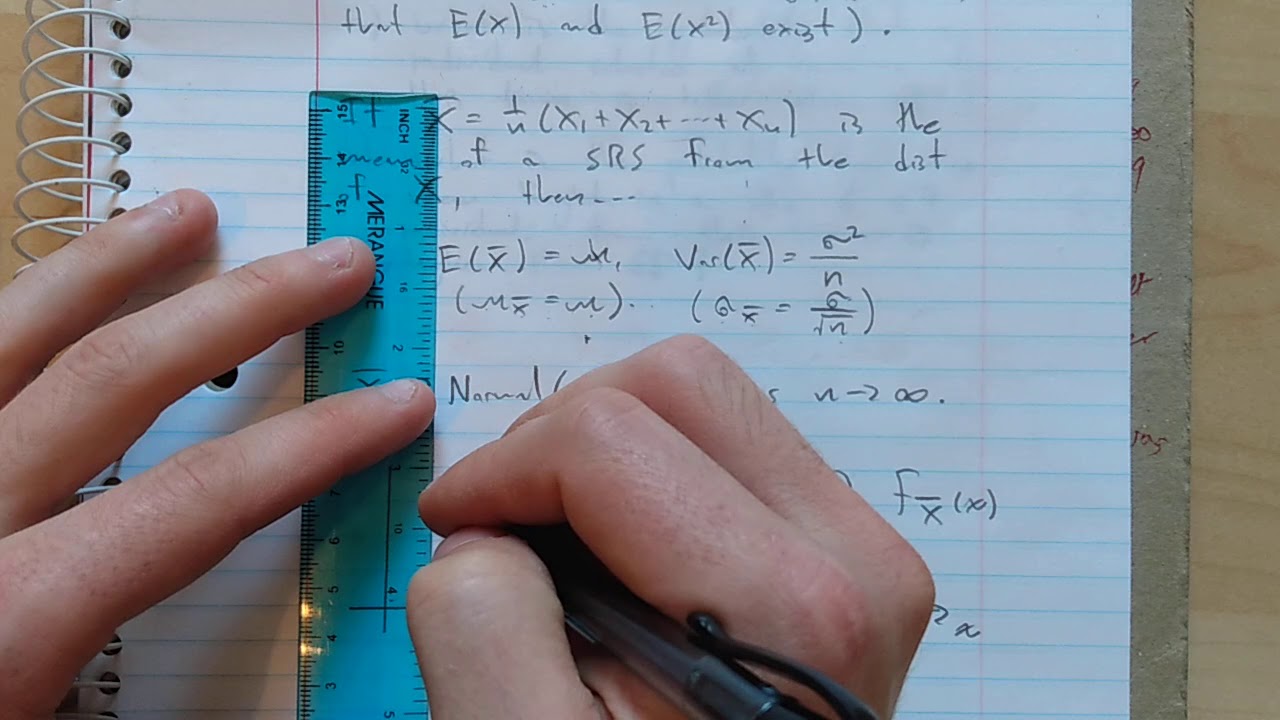 that E(X) and E(X²) exist).
If X̄ = 1/n (X₁ + X₂ + ⋯ + Xₙ) is the
mean of a SRS from the dist
f X, then...
E(X̄) = μ, Var(X̄) = σ²/n
(μ_X̄ = μ). (σ_X̄ = σ/√n)
Normal( n → ∞.
f_X̄(x)
x
INCH
MERANGUE
15
14
13
10
7
6
5
4
3
32
1
16
2
3
10
4
5